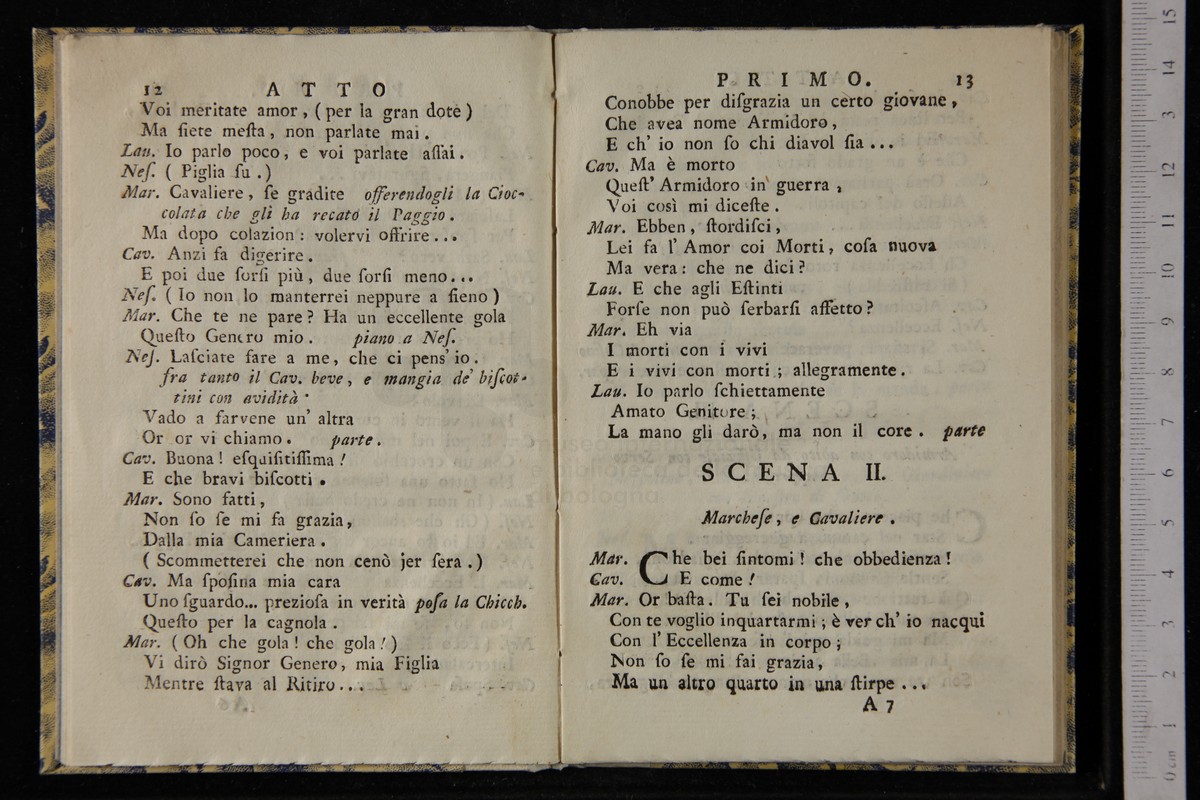 12 ATTO
Voi meritate amor, (per la gran dote)
Ma ſiete meſta, non parlate mai.
Lau. Io parlo poco, e voi parlate aſſai.
Neſ. ( Piglia ſu .)
Mar. Cavaliere, ſe gradite offerendogli la Cioc-
colata che gli ha recato il Paggio.
Ma dopo colazion: volervi offrire...
Cav. Anzi fa digerire.
E poi due ſorſi più, due ſorſi meno...
Neſ. ( Io non lo manterrei neppure a fieno )
Mar. Che te ne pare? Ha un eccellente gola
Queſto Genero mio. piano a Neſ.
Neſ. Laſciate fare a me, che ci pens' io.
fra tanto il Cav. beve, e mangia de' biſcot-
tini con avidità.
Vado a farvene un' altra
Or or vi chiamo. parte.
Cav. Buona! eſquiſitiſſima!
E che bravi biſcotti.
Mar. Sono fatti,
Non ſo ſe mi fa grazia,
Dalla mia Cameriera.
( Scommetterei che non cenò jer ſera .)
Cav. Ma ſpoſina mia cara
Uno ſguardo... prezioſa in verità poſa la Chicch.
Queſto per la cagnola.
Mar. ( Oh che gola! che gola! )
Vi dirò Signor Genero, mia Figlia
Mentre ſtava al Ritiro...
PRIMO. 13
Conobbe per diſgrazia un certo giovane,
Che avea nome Armidoro,
E ch' io non ſo chi diavol ſia...
Cav. Ma è morto
Queſt' Armidoro in guerra,
Voi così mi diceſte.
Mar. Ebben, ſtordiſci,
Lei fa l' Amor coi Morti, coſa nuova
Ma vera: che ne dici?
Lau. E che agli Eſtinti
Forſe non può ſerbarſi affetto?
Mar. Eh via
I morti con i vivi
E i vivi con morti; allegramente.
Lau. Io parlo ſchiettamente
Amato Genitore;
La mano gli darò, ma non il core. parte
SCENA II.
Marcheſe, e Cavaliere.
Mar. Che bei ſintomi! che obbedienza!
Cav. E come!
Mar. Or baſta. Tu ſei nobile,
Con te voglio inquartarmi; è ver ch' io nacqui
Con l' Eccellenza in corpo;
Non ſo ſe mi fai grazia,
Ma un altro quarto in una ſtirpe...
A 7